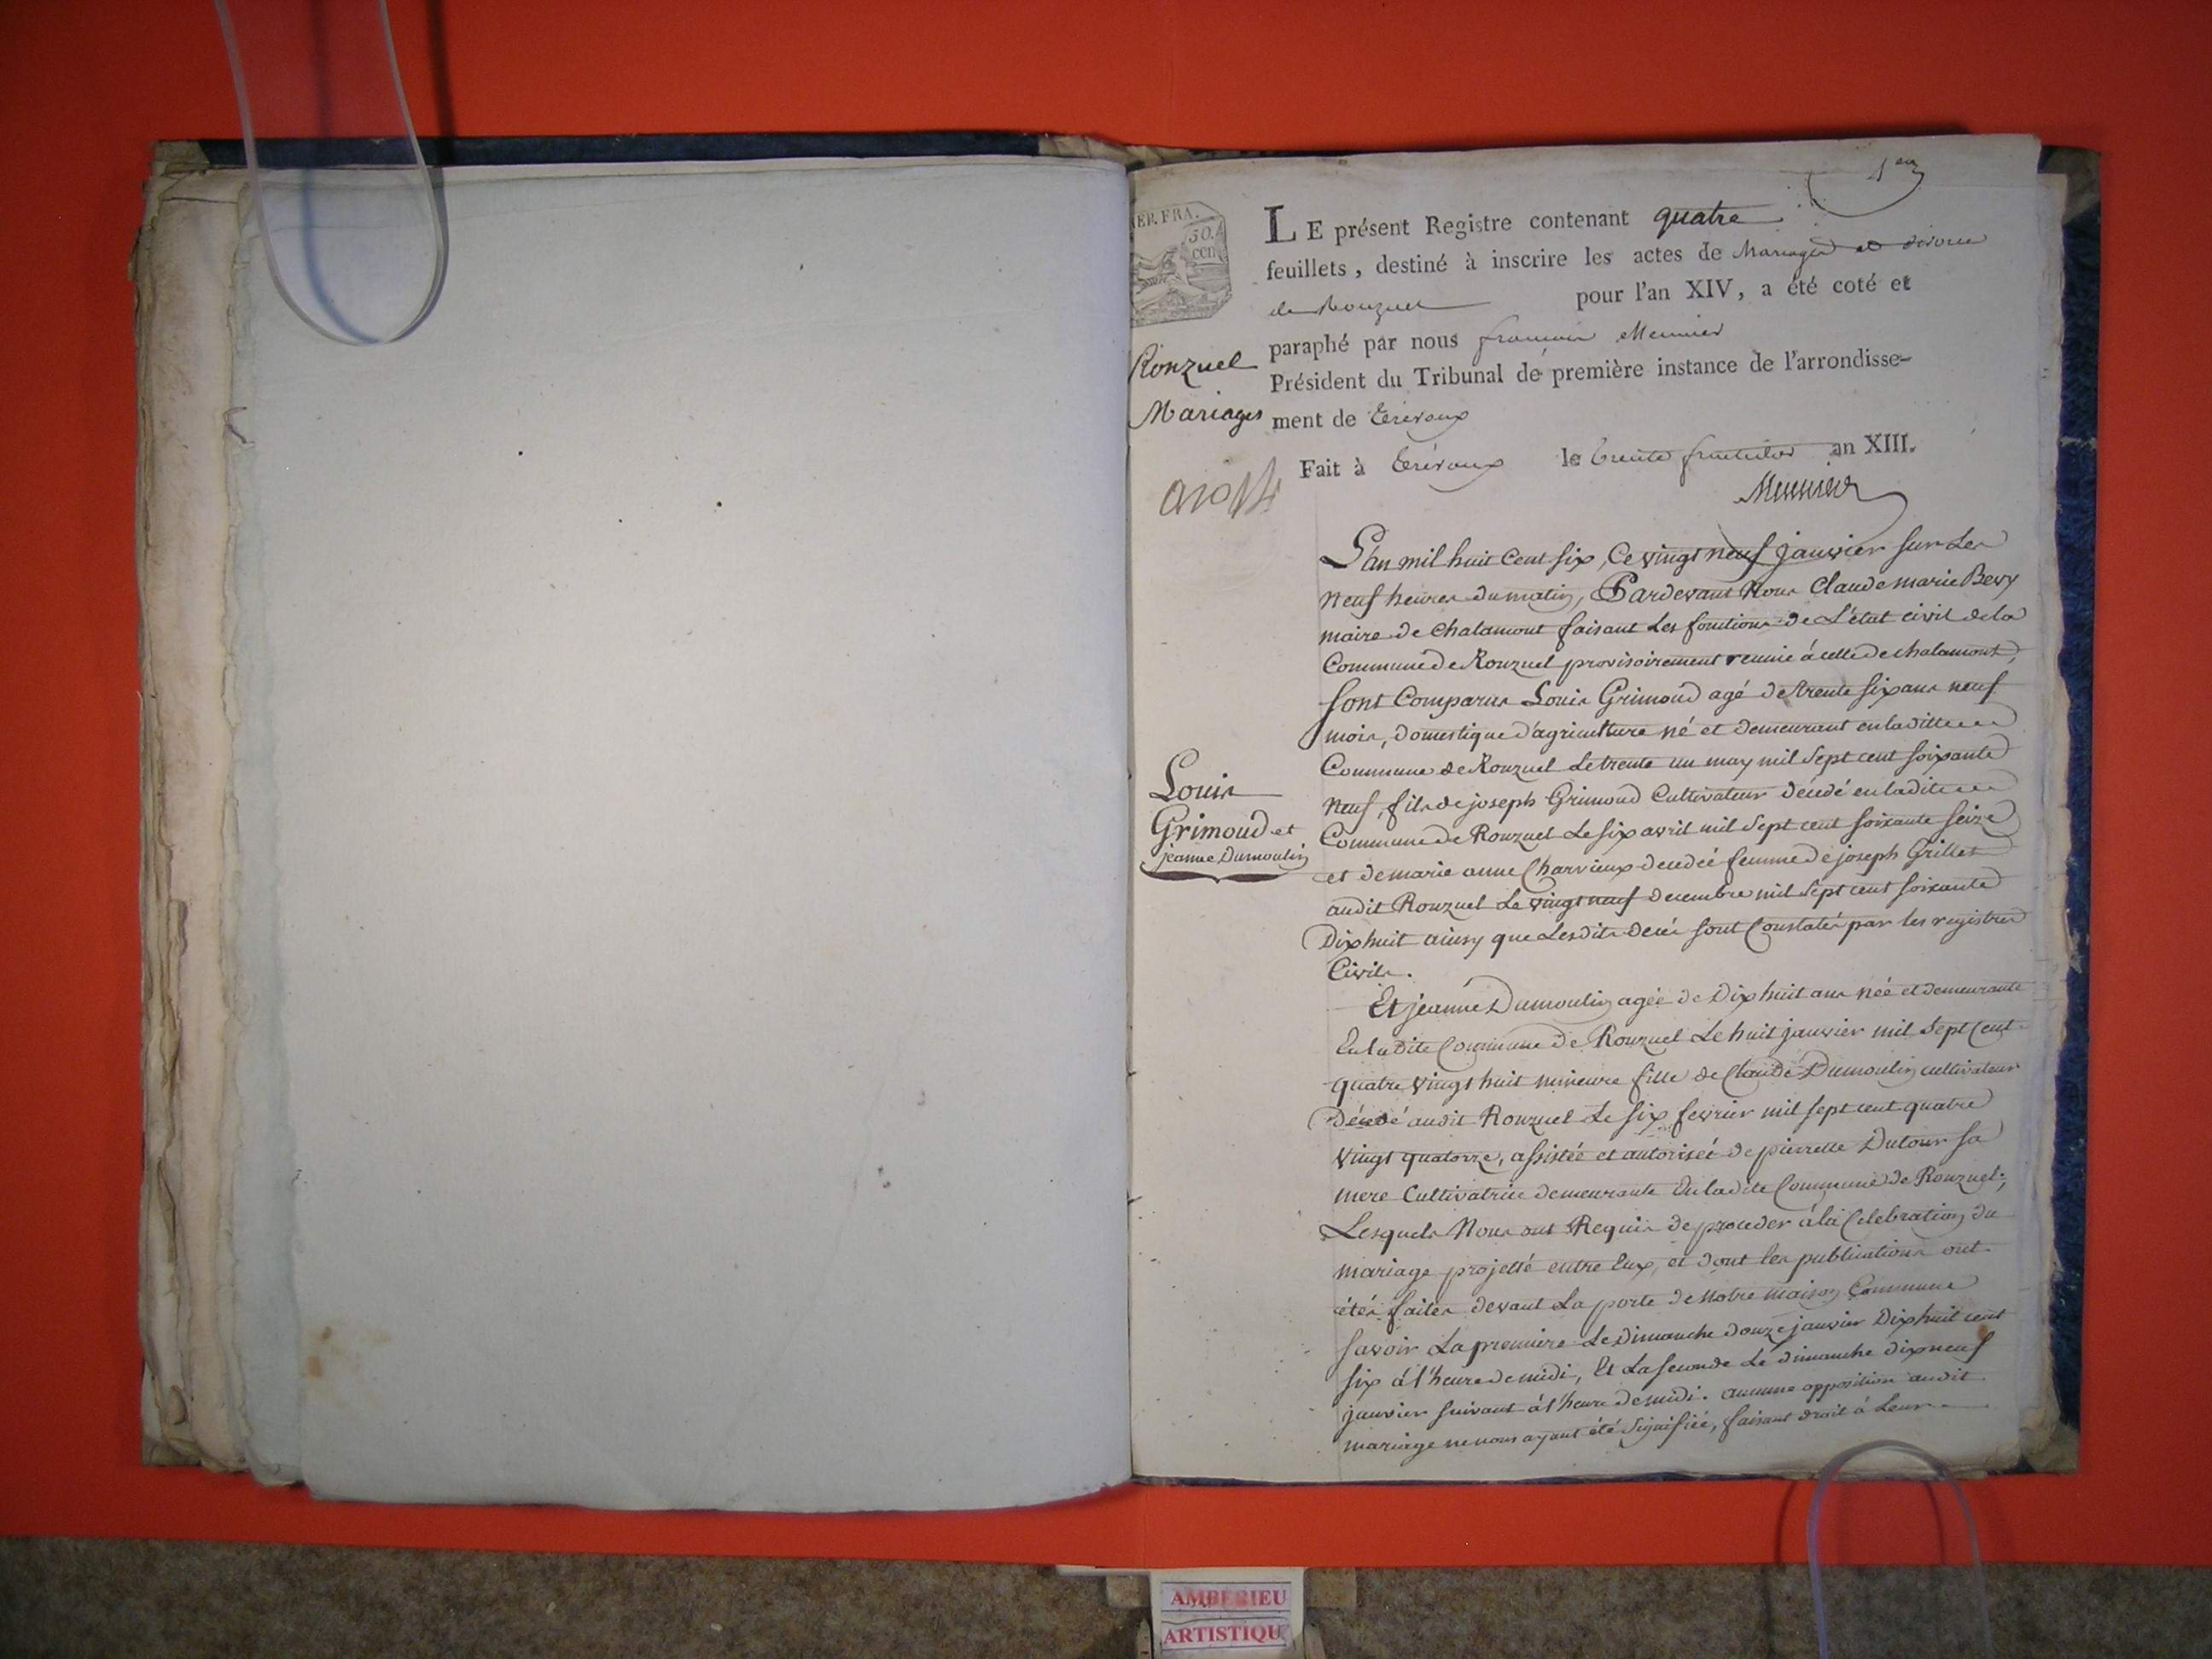 1er
REP. FRA.
50.
cen
LE présent Registre contenant quatre
feuillets, destiné à inscrire les actes de Mariages et divorce
de Ronzuel pour l'an XIV, a été coté et
paraphé par nous françois Meunier
Président du Tribunal de première instance de l'arrondisse-
ment de Trévoux
Fait à Trévoux le trente fructidor an XIII.
Meunier
Ronzuel
Mariages
an 14
L'an mil huit Cent six, Ce vingt neuf janvier sur Les
neuf heures du matin, Pardevant Nous Claude marie Bevy
maire de Chalamont faisant Les fonctions de L'état civil de la
Commune de Ronzuel provisoirement reunie à celle de chalamont,
sont Comparus Louis Grimoud agé de trente six ans neuf
mois, domestique d'agriculture né et demeurant en laditte
Commune de Ronzuel Le trente un may mil Sept cent soixante
neuf, fils de joseph Grimoud Cultivateur décédé en ladite
Commune de Ronzuel Le six avril mil Sept cent soixante seize
et de marie anne Charvieux decedée femme de joseph Grillet
audit Ronzuel Le vingt neuf decembre mil Sept cent soixante
Dix huit ainsy que Lesdits décés sont Constatés par les registres
Civils.
Louis
Grimoud et
jeanne Dumoulin
Et jeanne Dumoulin agée de Dix huit ans née et demeurante
En ladite Commune de Ronzuel Le huit janvier mil Sept Cent
quatre vingt huit mineure fille de Claude Dumoulin cultivateur
Décédé audit Ronzuel Le six fevrier mil sept cent quatre
vingt quatorze, assistée et autorisée de pierrette Dutour sa
mere Cultivatrice demeurante En ladite Commune de Ronzuel;
Lesquels Nous ont Requis de proceder à la Celebration du
mariage projetté entre Eux, et dont les publications ont
étés faites devant La porte de Notre maison Commune
savoir La premiere Le Dimanche douze janvier Dix huit cent
six à l'heure de midi, Et La seconde Le dimanche dix neuf
janvier suivant à l'heure de midi. aucune opposition audit
mariage ne nous ayant été signifiée, faisant droit à Leur
AMBERIEU
ARTISTIQU